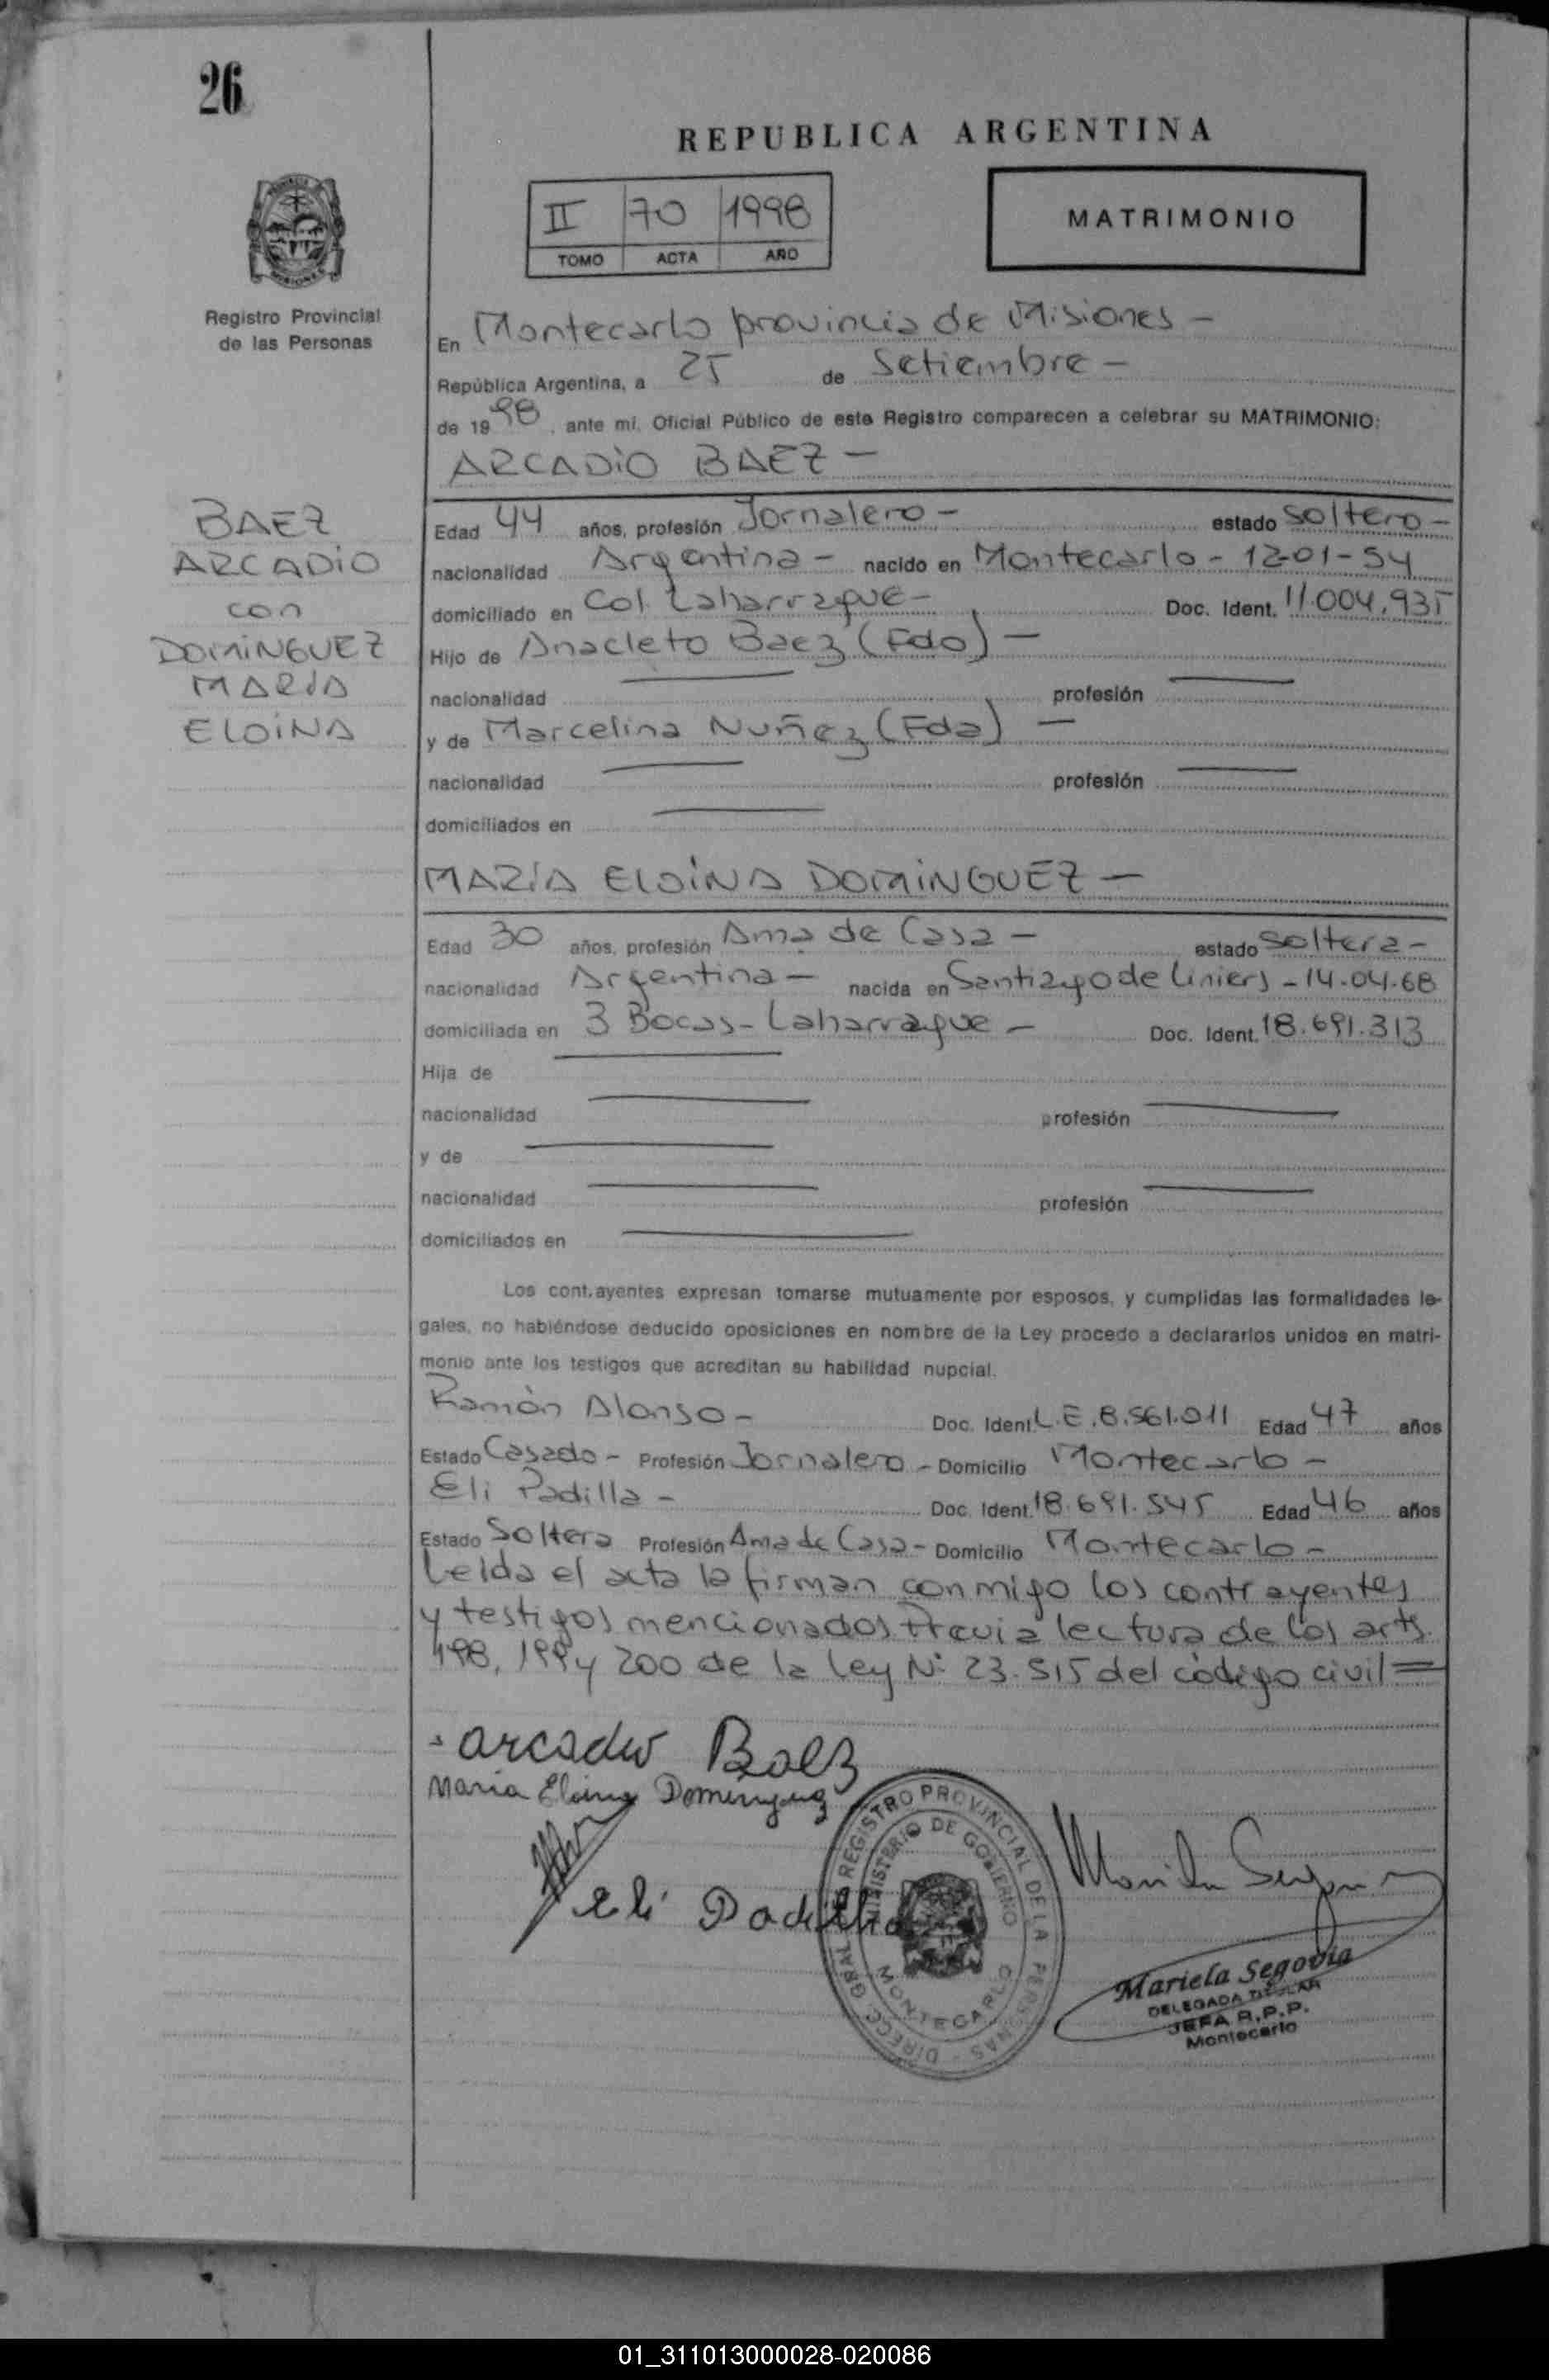 26
REPUBLICA ARGENTINA
II 70 1998
TOMO ACTA AÑO
MATRIMONIO
Registro Provincial
de las Personas
En Montecarlo provincia de Misiones -
República Argentina, a 25 de Setiembre -
de 1998, ante mi, Oficial Público de este Registro comparecen a celebrar su MATRIMONIO:
ARCADIO BAEZ -
BAEZ
ARCADIO
con
DOMINGUEZ
MARIA
ELOINA
Edad 44 años, profesión Jornalero - estado soltero -
nacionalidad Argentina - nacido en Montecarlo - 12-01-54
domiciliado en Col. Laharrague - Doc. Ident. 11.004.935
Hijo de Anacleto Baez (Fdo) -
nacionalidad profesión
y de Marcelina Nuñez (Fda) -
nacionalidad profesión
domiciliados en
MARÍA ELOINA DOMINGUEZ -
Edad 30 años, profesión Ama de Casa - estado soltera -
nacionalidad Argentina - nacida en Santiago de Liniers - 14.04.68
domiciliada en 3 Bocas - Laharrague - Doc. Ident. 18.691.313
Hija de
nacionalidad profesión
y de
nacionalidad profesión
domiciliados en
Los contrayentes expresan tomarse mutuamente por esposos, y cumplidas las formalidades le-
gales, no habiéndose deducido oposiciones en nombre de la Ley procedo a declararlos unidos en matri-
monio ante los testigos que acreditan su habilidad nupcial.
Ramón Alonso - Doc. Ident. L.E.8.561.011 Edad 47 años
Estado Casado - Profesión Jornalero - Domicilio Montecarlo -
Eli Padilla - Doc. Ident. 18.691.545 Edad 46 años
Estado Soltera Profesión Ama de Casa - Domicilio Montecarlo -
Leida el acta la firman conmigo los contrayentes
y testigos mencionados Previa lectura de los arts.
198, 199 y 200 de la Ley Nº 23.515 del código civil =
arcadio Baez
Maria Eloina Dominguez
eli Padilla
DIRECC. GRAL. REGISTRO PROVINCIAL DE LA PERSONAS
MINISTERIO DE GOBIERNO
MONTECARLO
Mariela Segovia
Mariela Segovia
DELEGADA TITULAR
JEFA R.P.P.
Montecarlo
01_311013000028-020086